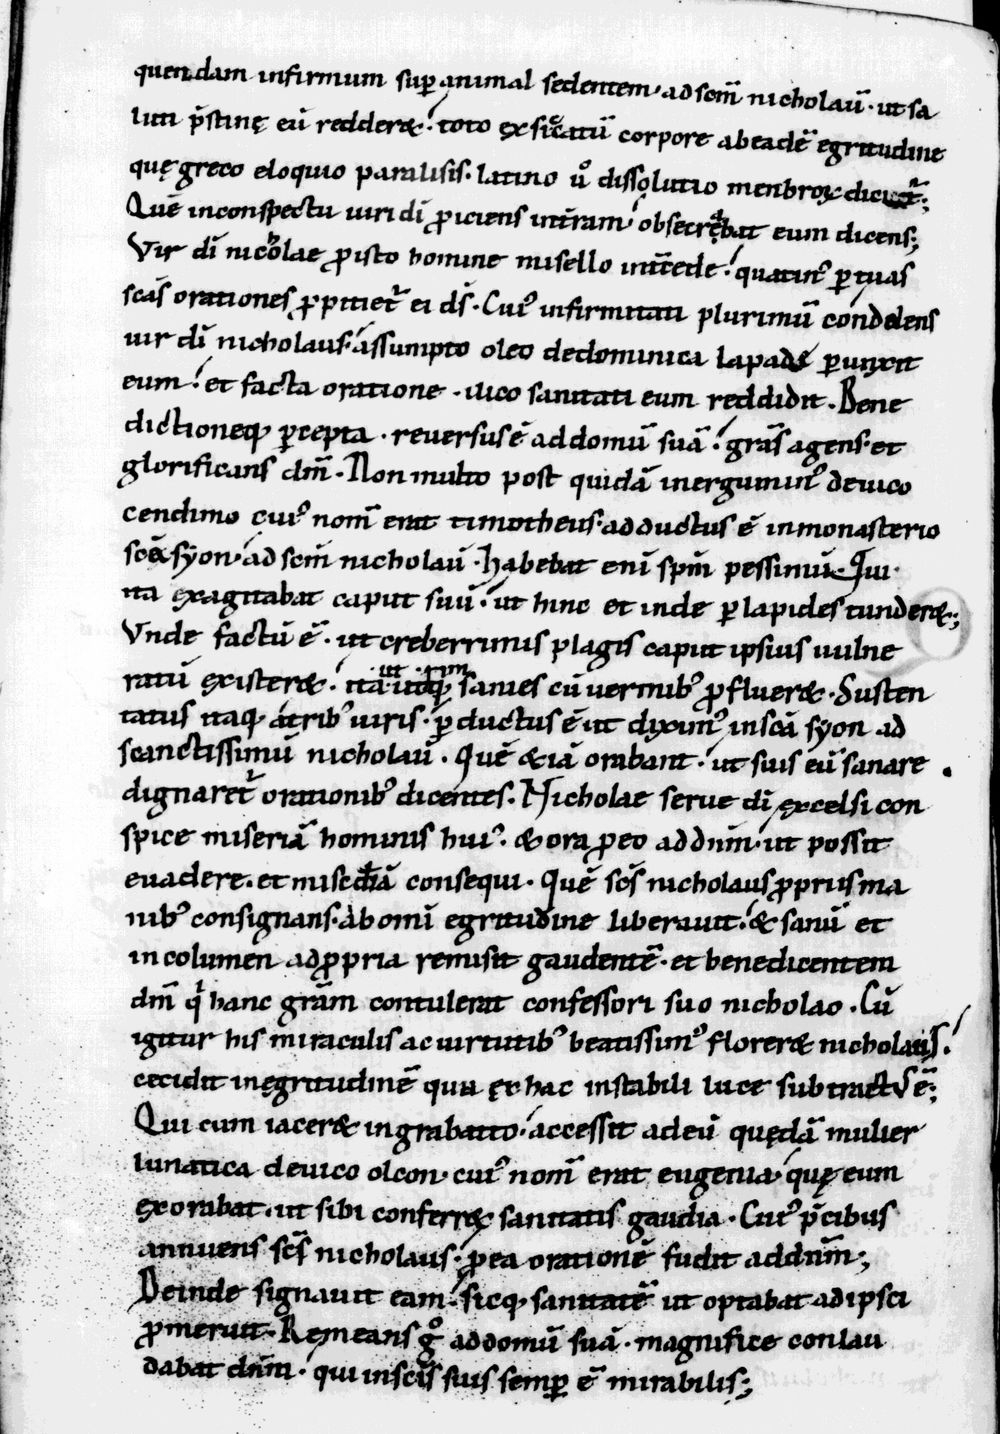 quendam infirmum sup animal sedentem · ad scm̄ nicholaū · ut sa
luti p̄stinę eū redderet · toto exsiccatū corpore ab eadē egritudine
quę greco eloquio paralisis · latino ů dissolutio menbroꝝ dicit̄ ;
Quē in conspectu uiri dī ꝓiciens in t̄ram · obsecrabat eum dicens ;
Vir dī nicholae ꝓ isto homine misello int̄cede · quatin᷒ ꝑ tuas
scās orationes ꝓpitiet̄ ei ds̄ · Cui᷒ infirmitati plurimū condolens
uir dī nicholaus · assumpto oleo de dominica lāpade ꝑunxit
eum · et facta oratione · ilico sanitati eum reddidit · Bene
dictioneq; ꝑcepta · reuersus ē ad domū suā · grās agens · et
glorificans dm̄ · Non multo post quidā inergumin᷒ de uico
cendimo cui᷒ nom̄ erat timotheus · adductus ē in monasterio
scē syon · ad scm̄ nicholaū · Habebat enī spm̄ pessimū · Qui ·
ita exagitabat caput suū · ut hinc et inde ꝑ lapides tunderet ;
Vnde factū ē · ut creberrimis plagis caput ipsius uulne
ratū existeret · ita utq; sanies cū uermib᷒ ꝓflueret · Susten
tatus itaq; a trib᷒ uiris · ꝑductus ē ut dixim᷒ in scā syon ad
scanctissimū nicholaū · Quē etiā orabant · ut suis eū sanare
dignaret̄ orationib᷒ dicentes · Nicholae serue dī excelsi con
spice miseriā hominis hui᷒ · & ora ꝓ eo ad dn̄m · ut possit
euadere · et misc̄diā consequi · Quē scs̄ nicholaus ꝓpriis ma
nib᷒ consignans · ab omī egritudine liberauit · & sanū et
incolumen ad ꝓpria remisit gaudentē · et benedicentem
dm̄ q̄ hanc grām contulerat confessori suo nicholao · Cū
igitur his miraculis ac uirtutib᷒ beatissim᷒ floreret nicholaus ·
cecidit in ęgritudinē qua ex hac instabili luce subtract᷒ ē ;
Qui cum iaceret in grabatto · accessit ad eū quędā mulier
lunatica de uico olcon · cui᷒ nom̄ erat eugenia · quę eum
exorabat · ut sibi conferret sanitatis gaudia · Cui᷒ p̄cibus
annuens scs̄ nicholaus · ꝓ ea orationē fudit ad dn̄m ;
Deinde signauit eam · sicq; sanitatē ut optabat adipsci
ꝓmeruit · Remeans g̊ ad domū suā · magnifice conlau
dabat dn̄m · qui in scīs suis semꝑ ē mirabilis ;